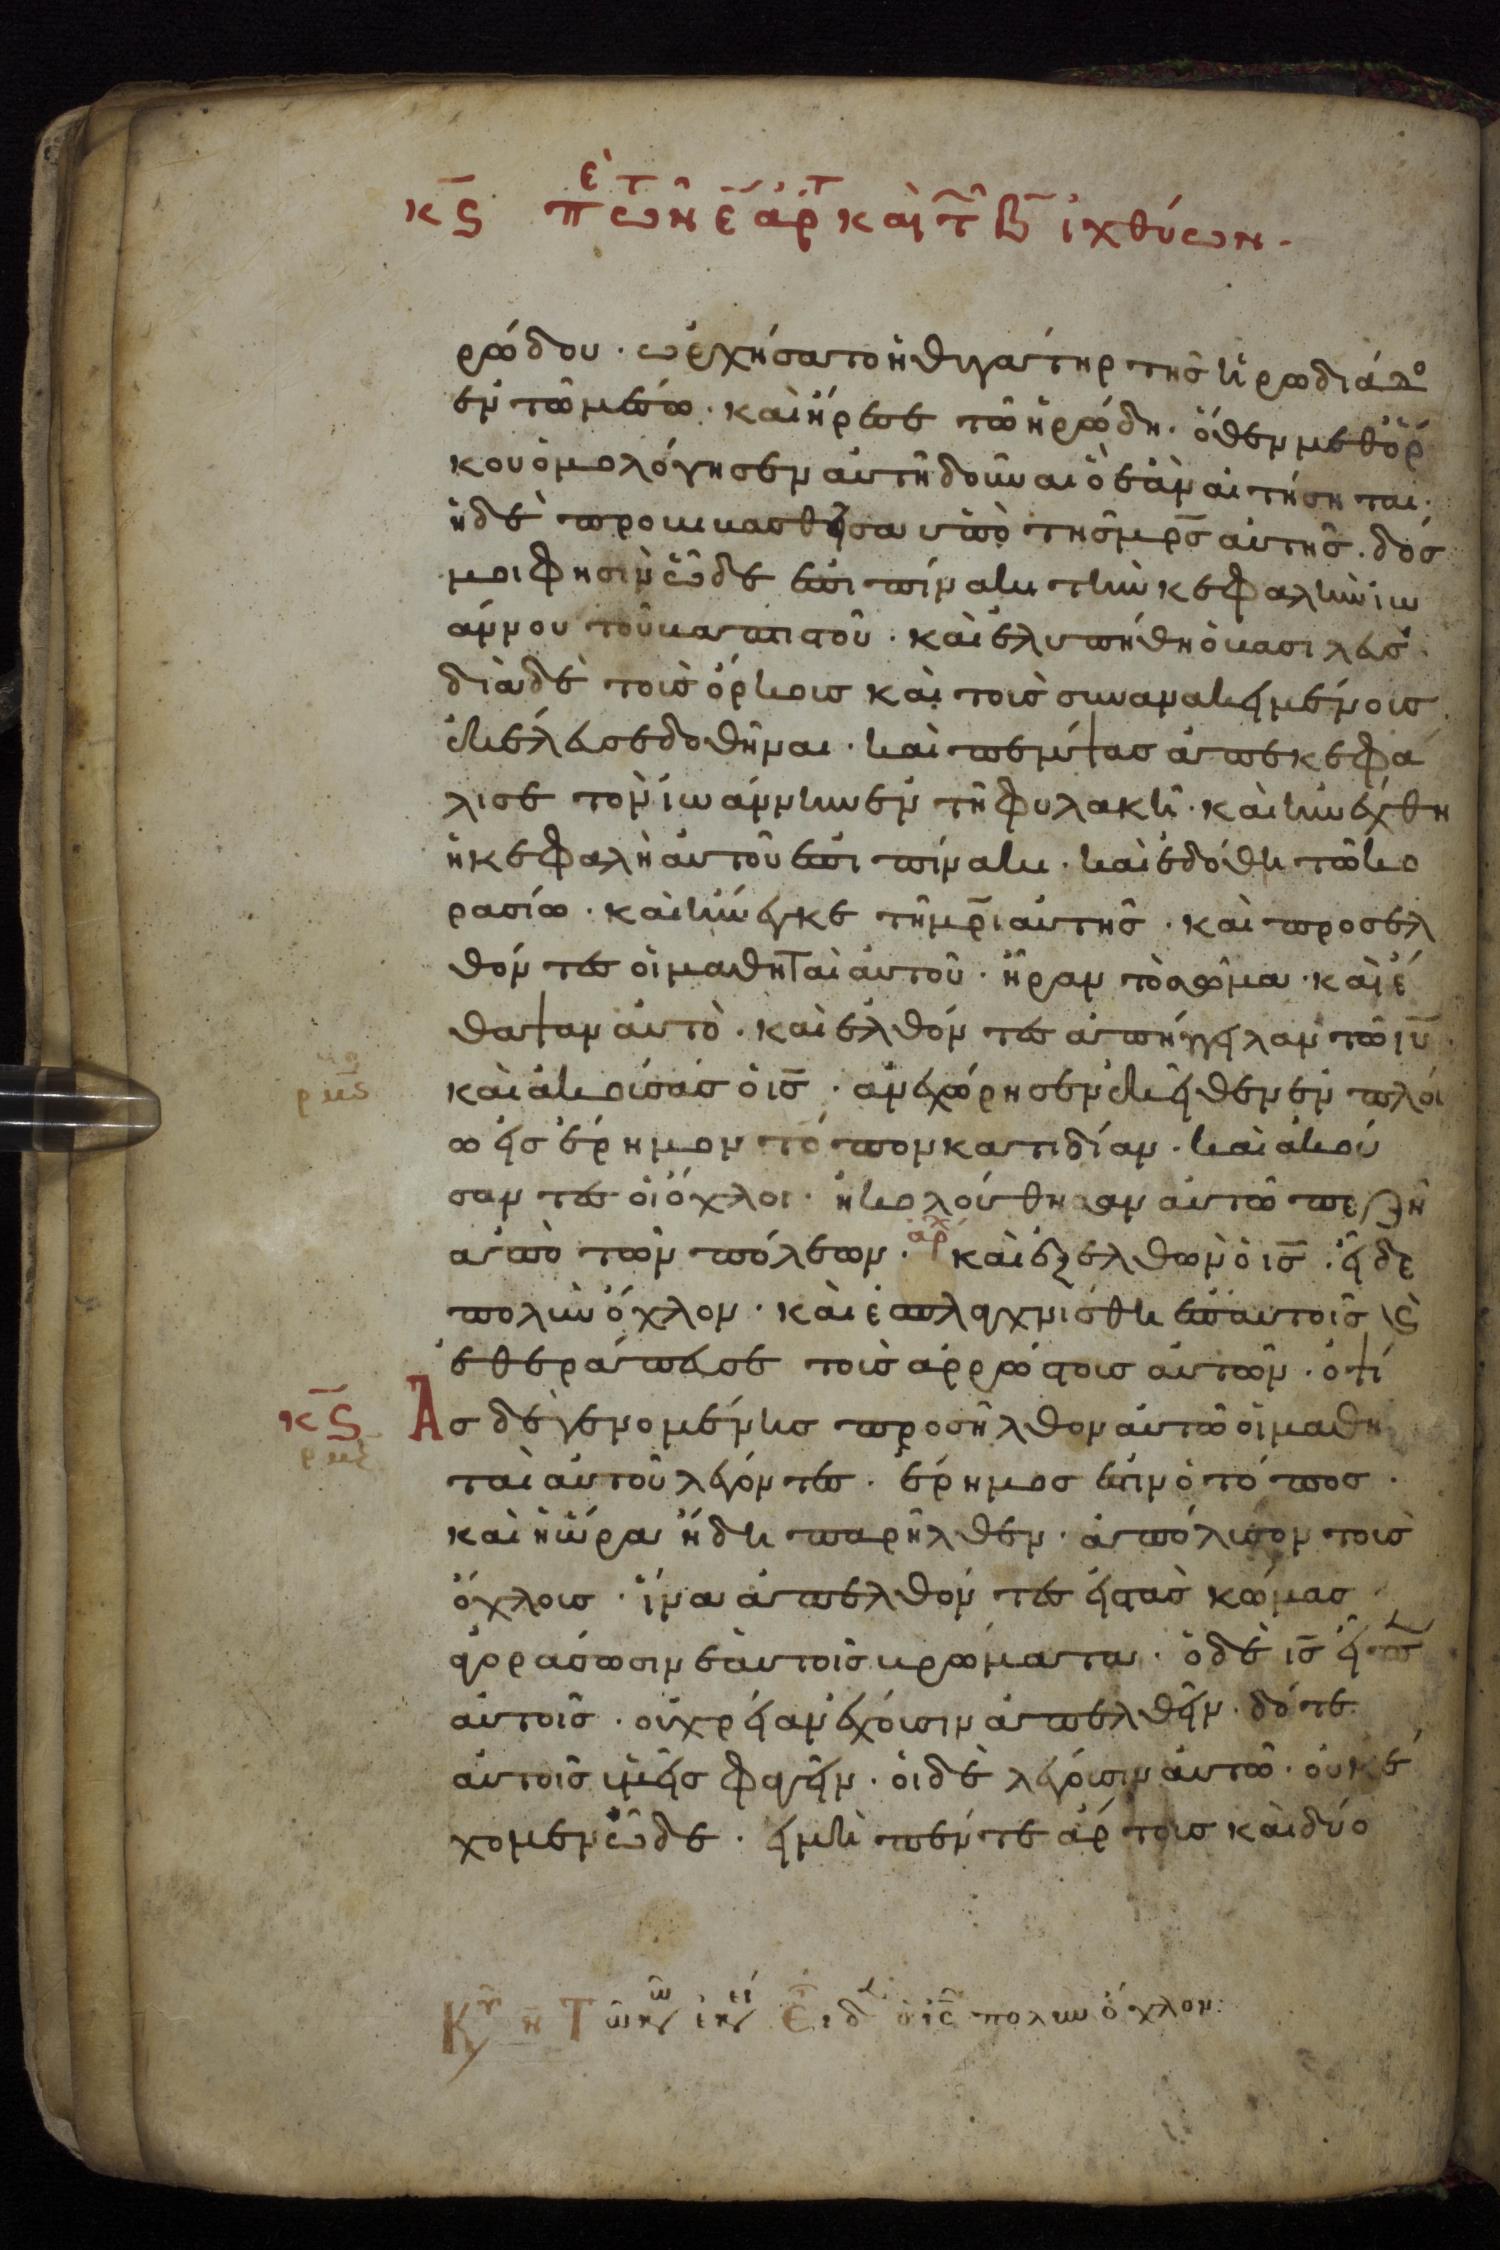 κϛ πε τῶν ε ἀρτ καὶ τ β ἰχθύων.
ρώδου. ὠρχήσατο ἡ θυγάτηρ τῆς ἡρωδιάδο
ἐν τῶ μέσω. καὶ ἤρεσε τῶ ἡρώδη. ὅθεν μεθ ὅρ
κου ὁμολόγησεν αὐτῆ δοῦναι ὃ ἐὰν αἰτήσηται.
ἡ δὲ προβιβασθεῖσα ὑπὸ τῆς μρς αὐτῆς. δός
μοι φησὶν ὧδε ἐπὶ πίνακι τὴν κεφαλὴν ἰω
άννου τοῦ βαπτιστοῦ. καὶ ἐλυπήθη ὁ βασιλεύς.
διὰ δὲ τοὺς ὅρκους καὶ τοὺς συνανακειμένους
ἐκέλευσε δοθῆναι. καὶ πέμψας ἀπεκεφά
λισε τὸν ἰωάννην ἐν τῆ φυλακῆ. καὶ ἠνέχθη
ἡ κεφαλὴ αὐτοῦ ἐπὶ πίνακι. καὶ ἐδόθη τῶ κο
ρασίω. καὶ ἤνεγκε τῆ μρι αὐτῆς. καὶ προσελ
θόντες οἱ μαθηταὶ αὐτοῦ. ἦραν τὸ σῶμα. καὶ ἔ
θαψαν αὐτὸ. καὶ ἐλθόντες ἀπήγγειλαν τῶ ιυ.
καὶ ἀκούσας ὁ ις. ἀνεχώρησεν ἐκεῖθεν ἐν πλοί
ω εἰς ἔρημον τόπον κατιδίαν. καὶ ἀκού
σαντες οἱ ὄχλοι. ἠκολούθησαν αὐτῶ πεζῆ
ἀπὸ τῶν πόλεων. ἀρχ καὶ ἐξελθὼν ὁ ις. εἶδε
πολὺν ὄχλον. καὶ ἐσπλαγχνίσθη ἐπ αὐτοῖς κ
ἐθεράπευσε τοὺς ἀρρώστους αὐτῶν. ὀψί
κϛ Ας δὲ γενομένης προσῆλθον αὐτῶ οἱ μαθη
ταὶ αὐτοῦ λέγοντες. ἔρημος ἐστιν ὁ τόπος.
καὶ ἡ ὥρα ἤδη παρῆλθεν. ἀπόλυσον τοὺς
ὄχλους. ἵνα ἀπελθόντες εἰς τὰς κώμας
ἀγοράσωσιν ἑαυτοῖς βρώματα. ὁ δὲ ις εἶπεν
αὐτοῖς. οὐ χρείαν ἔχουσιν ἀπελθεῖν. δότε
αὐτοῖς ὑμεῖς φαγεῖν. οἱ δὲ λέγουσιν αὐτῶ. οὐκ ἔ
χομεν ὧδε. εἰμὴ πέντε ἄρτους καὶ δύο
Κυ η Τῶ εἶδ ὁ ις πολὺν ὄχλον: